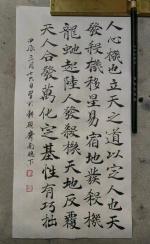 人心機也立天之道以定人也天
發殺機移星易宿地發殺機
龍虵起陸人發殺機天地反覆
天人合發萬化定基性有巧拙
三月十六日